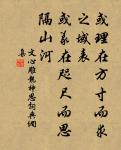 或理在方寸而求
之域表
或義在咫尺而思
隔山河
文心雕龍神思詞典網
集